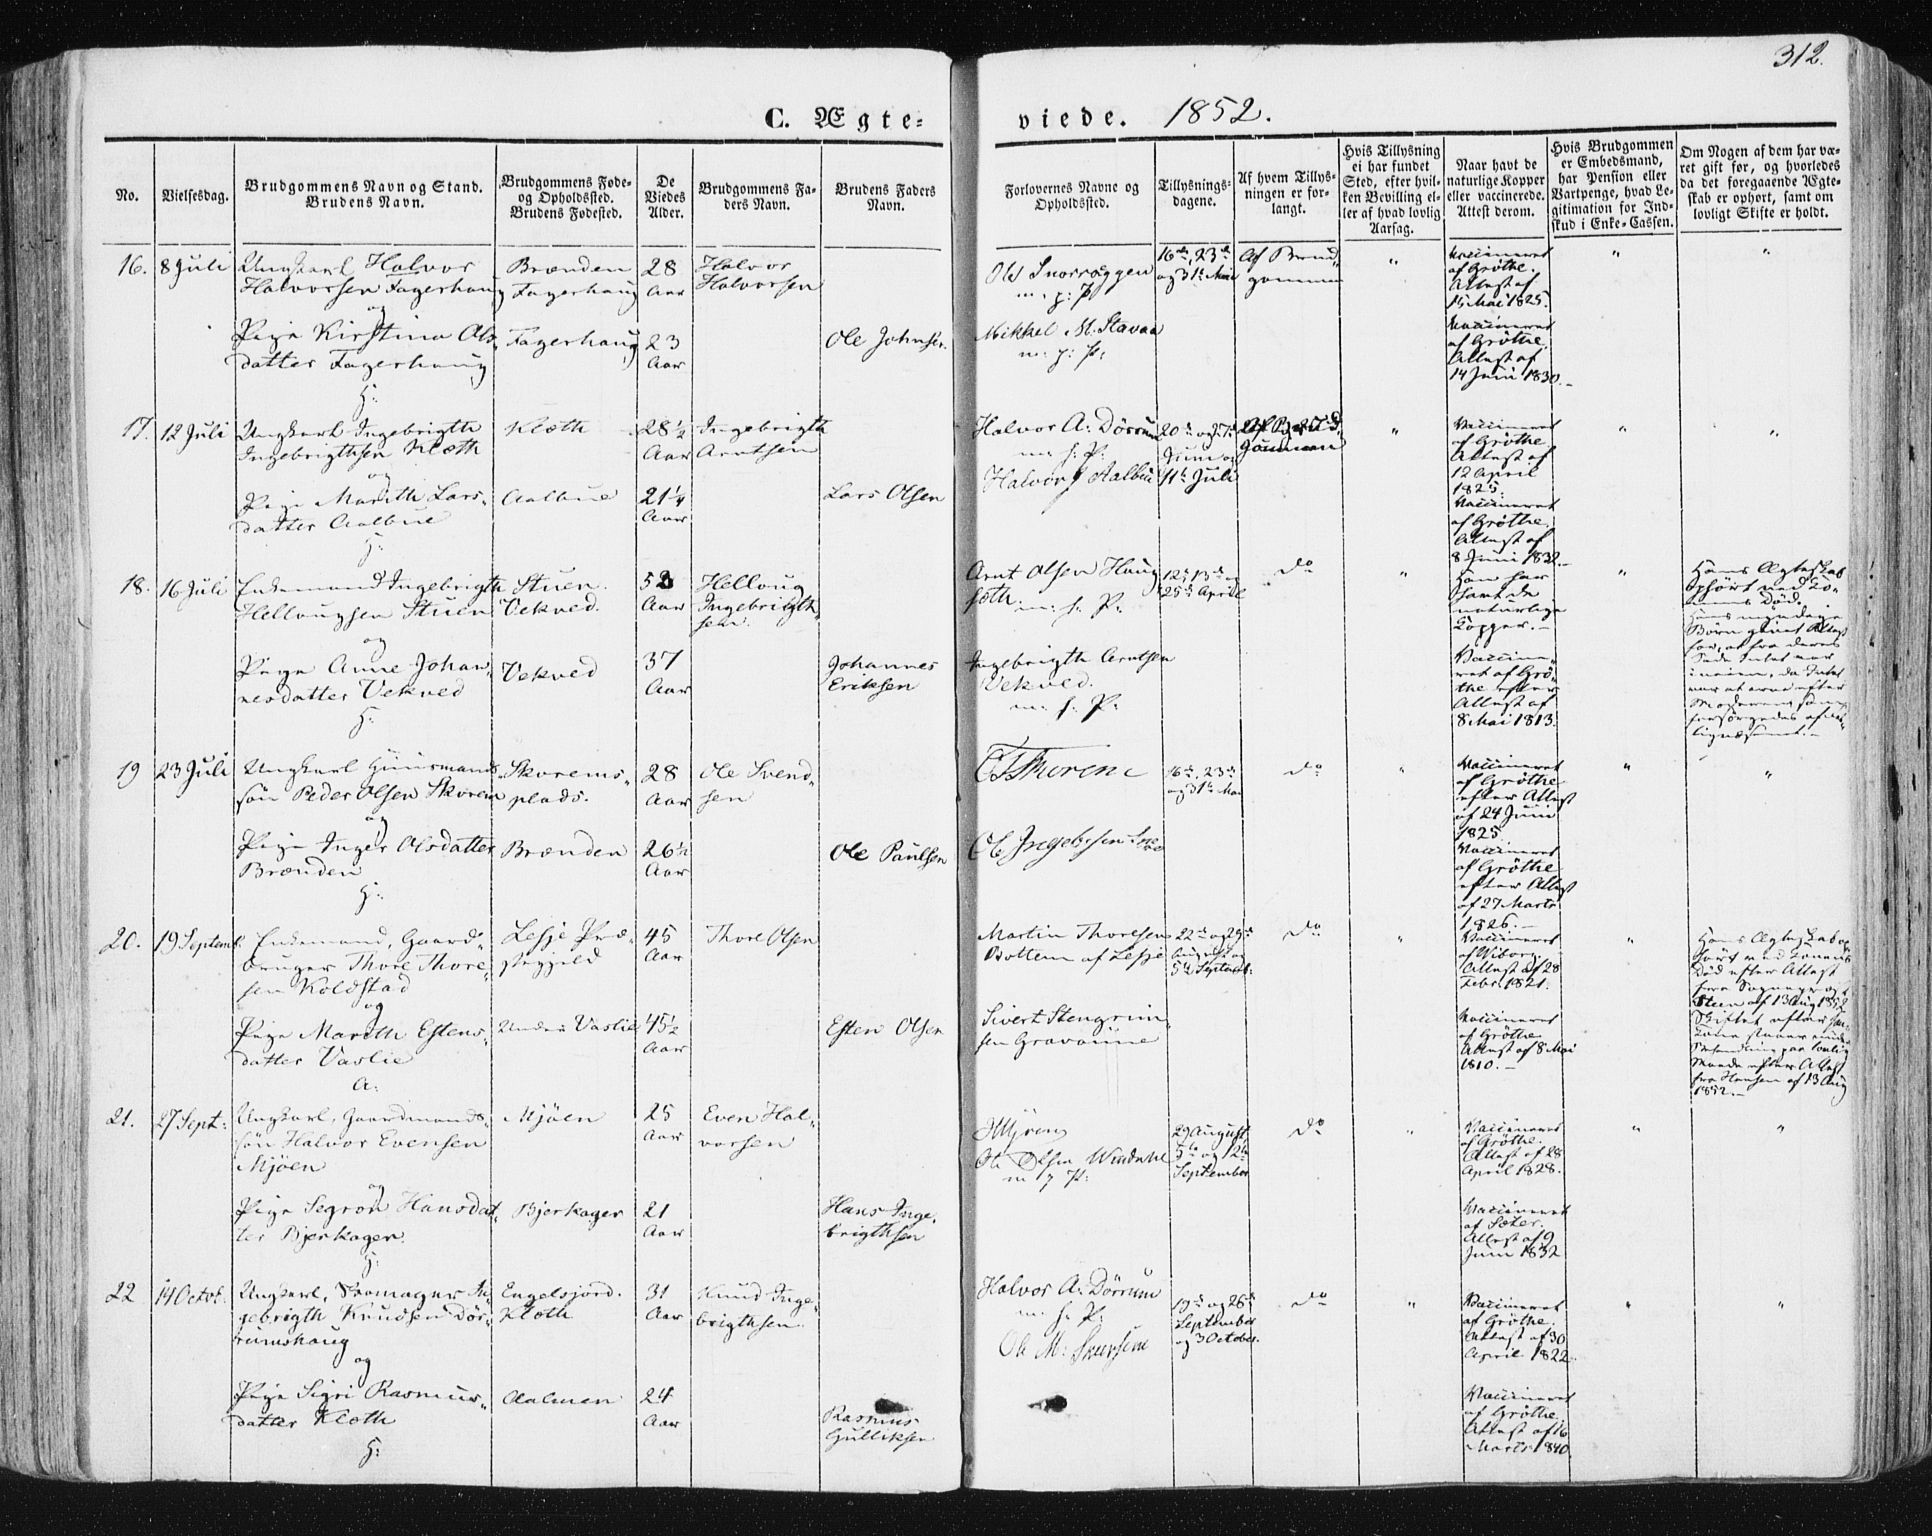 312.
C. Ægte-viede. 1852.
No.
Vielsesdag.
Brudgommens Navn og Stand.
Brudens Navn.
Brudgommens Føde-
og Opholdssted.
Brudens Fødested.
De
Viedes
Alder.
Brudgommens Fa-
ders Navn.
Brudens Faders
Navn.
Forlovernes Navne og
Opholdssted.
Tillysnings-
dagene.
Af hvem Tillys-
ningen er for-
langt.
Hvis Tillysning
ei har fundet
Sted, efter hvil-
ken Bevilling el-
ler af hvad lovlig
Aarsag.
Naar havt de
naturlige Kopper
eller vaccinerede.
Attest derom.
Hvis Brudgommen
er Embedsmand,
har Pension eller
Vartpenge, hvad Le-
gitimation for Ind-
skud i Enke-Cassen.
Om Nogen af dem har væ-
ret gift før, og hvorledes
da det foregaaende Ægte-
skab er ophørt, samt om
lovligt Skifte er holdt.
16. 8 Juli
Ungkarl Halvor
Halvorsen Fagerhaug
og
Pige Kirstina Ols-
datter Fagerhaug
H:
Brænden
Fagerhaug
Fagerhaug
28
Aar
23
Aar
Halvor
Halvorsen
Ole Johnsen.
Ole Snorroggen
m. p: P.
Mikkel M. Stavaa
m. p: P.
16de, 23de
og 31te Mai
Af Brud
gommen
"
Vaccineret
af Grøthe.
Attest af
15 Mai 1825.
Vaccineret
af Grøthe.
Attest af
14 Juni 1830.-
"
"
17. 12 Juli
Ungkarl Ingebrigth
Ingebrigthsen Kleth
og
Pige Marith Lars-
datter Aalbue
H:
Kleth
Aalbue
28 1/2
Aar
21 1/4
Aar
Ingebrigth
Arntsen
Lars Olsen
Halvor A. Dørrum
m. p. P.
Halvor J Aalbu
20de og 27de
Juni og
11te Juli
Af Brud-
gommen
"
Vaccineret
af Grøthe
Attest af
12 April
1825.
Vaccineret
af Grøthe.
Attest af
8 Juni 1832.-
"
"
18. 16 Juli
Enkemand Ingebrigth
Hellougsen Stuen
og
Pige Anne Johan-
nesdatter Vekved
H:
Stuen.
Vekved.
Vekved
52
Aar
37
Aar
Helloug
Ingebrigth-
sen.
Johannes
Eriksen
Arnt Olsen Haug
sæth m. p. P.
Ingebrigth Arntsen
Vekved.
m. p. P.
25de April
Do
"
Han har
havt de
naturlige
Kopper.-
Vaccine-
ret af Grø-
the efter
Attest af
8 Mai 1813.
"
Hans Ægteskab
ophørt ved Ko-
nens Død.
Hans myndige
Børn givet Attest
for, at fra deres
Side Intet var
iveien, da Intet
var at arve efter
Moderen
19 23 Juli
Ungkarl Huusmands-
søn Peder Olsen Skorem
og
Pige Inger Olsdatter
Brænden
H:
Skorems-
plads.
Brænden
28
Aar
26 1/2
Aar
Ole Svend-
sen
Ole Paulsen
Ole Ingebrsen
16de, 23de
og 31te Mai
Do
"
Vaccineret
af Grøthe
efter Attest
af 24 Juni
1825
Vaccineret
af Grøthe
efter Attest
af 27 Marts
1826.-
"
"
20. 19 Septemb.
Enkemand, Gaard-
bruger Thore Thore-
sen Koldstad
og
Pige Marith Estens-
datter Vaslie
A:
Lesje Præ-
stegjeld
Under Vaslie
45
Aar
45 1/2
Aar
Thore Olsen
Esten Olsen
Martin Thoresen
Bottem af Lesje
Sivert Stengrim-
sen Gravaune
22de og 29de
August og
5te Septemb:
Do
"
Vaccineret
af Wiborg.
Attest af 28
Febr. 1821.
Vaccineret
af Grøthe
Attest af 8 Mai
1810.-
"
Hans Ægteskab op-
hørt ved Konens
Død efter Attest
fra Sogneprest
Steen af 13 Aug 1852
Skiftet efter
Behandling paa lovlig
Maade efter Attest
fra Hansen af 13 Aug
1852.-
21. 27 Sept:
Ungkarl, Gaardmands-
søn Halvor Evensen
Mjøen
og
Pige Segron Hansdat-
ter Bjerkager.
H:
Mjøen
Bjerkager
25
Aar
21
Aar
Even Hal-
vorsen
Hans Inge-
brigthsen
Ole Olsen Windahl
m p P.
29 August,
5te og 12te
September
Do
"
Vaccineret
af Grøthe.
Attest af 28
April 1828.
Vaccineret
af Sæter.
Attest af 9
Juni 1832
"
"
22 14 Octob.
Ungkarl, Skomager In-
gebrigth Knudsen Dør-
rumshaug
og
Pige Sigri Rasmus-
datter Kleth
H:
Engelsjord.
Kleth
Aalmen
31
Aar
24
Aar
Knud Inge-
brigthsen.
Rasmus
Gulliksen
Halvor A. Dørrum
m. p. P.
Ole M:
19de og 26de
September
og 3 October.
Do
"
Vaccineret
af Grøthe.
Attest af 30
April 1822.
Vaccineret
af Grøthe.
Attest af 16
Marts 1840
"
"